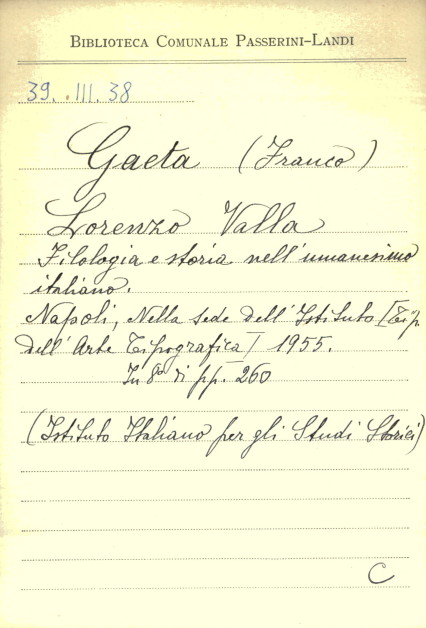 BIBLIOTECA COMUNALE PASSERINI-LANDI
39. III. 38
Gaeta (Franco)
Lorenzo Valla
Filologia e storia nell'umanesimo
italiano.
Napoli, Nella sede dell'Istituto [Tip.
dell'Arte Tipografica] 1955.
In 8° di pp. 260
(Istituto Italiano per gli Studi Storici)
C